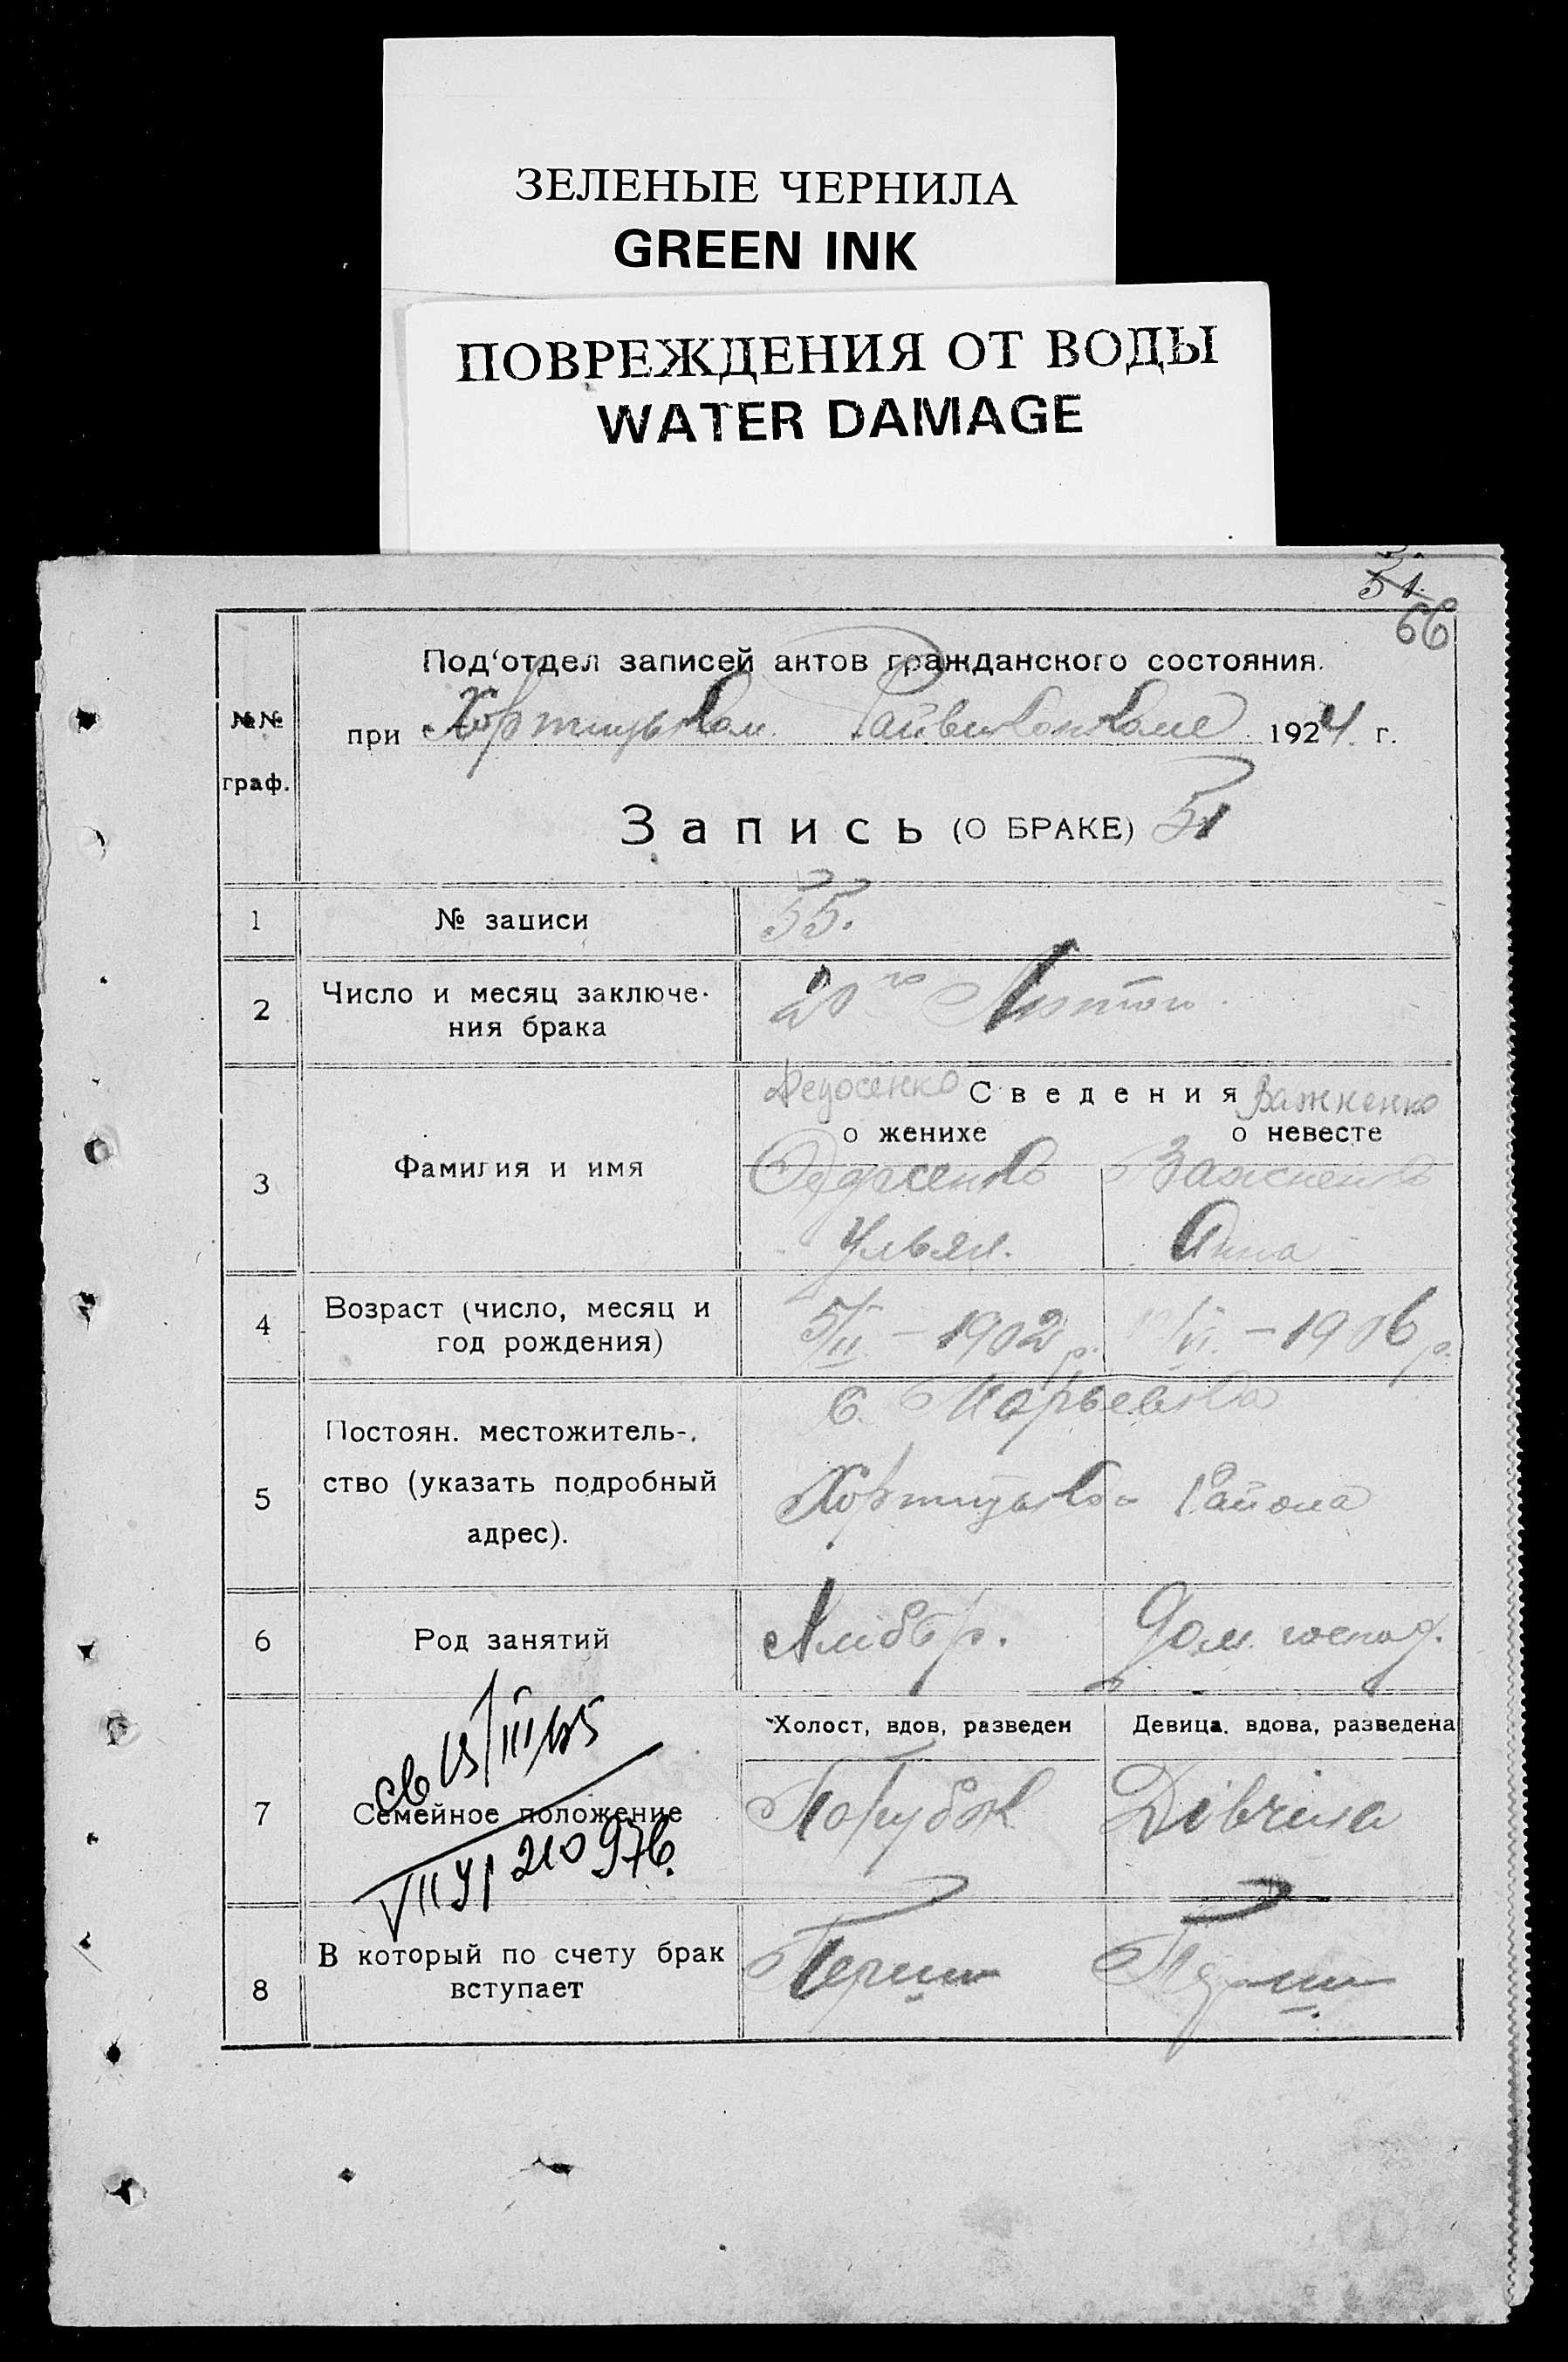 ЗЕЛЕНЫЕ ЧЕРНИЛА
GREEN INK
ПОВРЕЖДЕНИЯ ОТ ВОДЫ
WATER DAMAGE
51.
66
№№ граф.
Под‘отдел записей актов гражданского состояния.
при Хортицьком. Райвиконкоме 1924 г.
Запись (О БРАКЕ) 51
1 № записи 55.
2 Число и месяц заключе-
ния брака 20го Лютого
Федосенко Сведения Важненко
о женихе о невесте
3 Фамилия и имя Федосенко Важненко
Ульян. Анна
4 Возраст (число, месяц и
год рождения) 5/II – 1902 р. /VI. – 1906 р.
С. Марьевка
5 Постоян. местожитель-
ство (указать подробный
адрес).
Хортицько Района
6 Род занятий Хлібор. Дом. господ.
Холост, вдов, разведен Девица, вдова, разведена
7 Семейное положение Парубок Дівчина
8 В который по счету брак
вступает Перши Перши